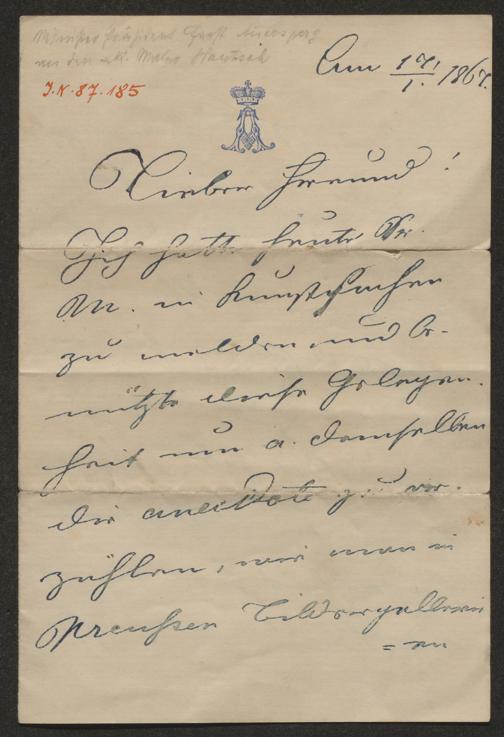 Minister Präsident Fürst Auersperg
an den Maler
J.N. 87.185
Am 17./1. 1867.
Lieber Freund!
Ich hatte heute Sr.
M. in Kunstsachen
zu melden und be-
nützte diese Gelegen-
heit um a. demselben
die anecdote zu er-
zählen, wie man in
Preussen Bildergallerie
=en